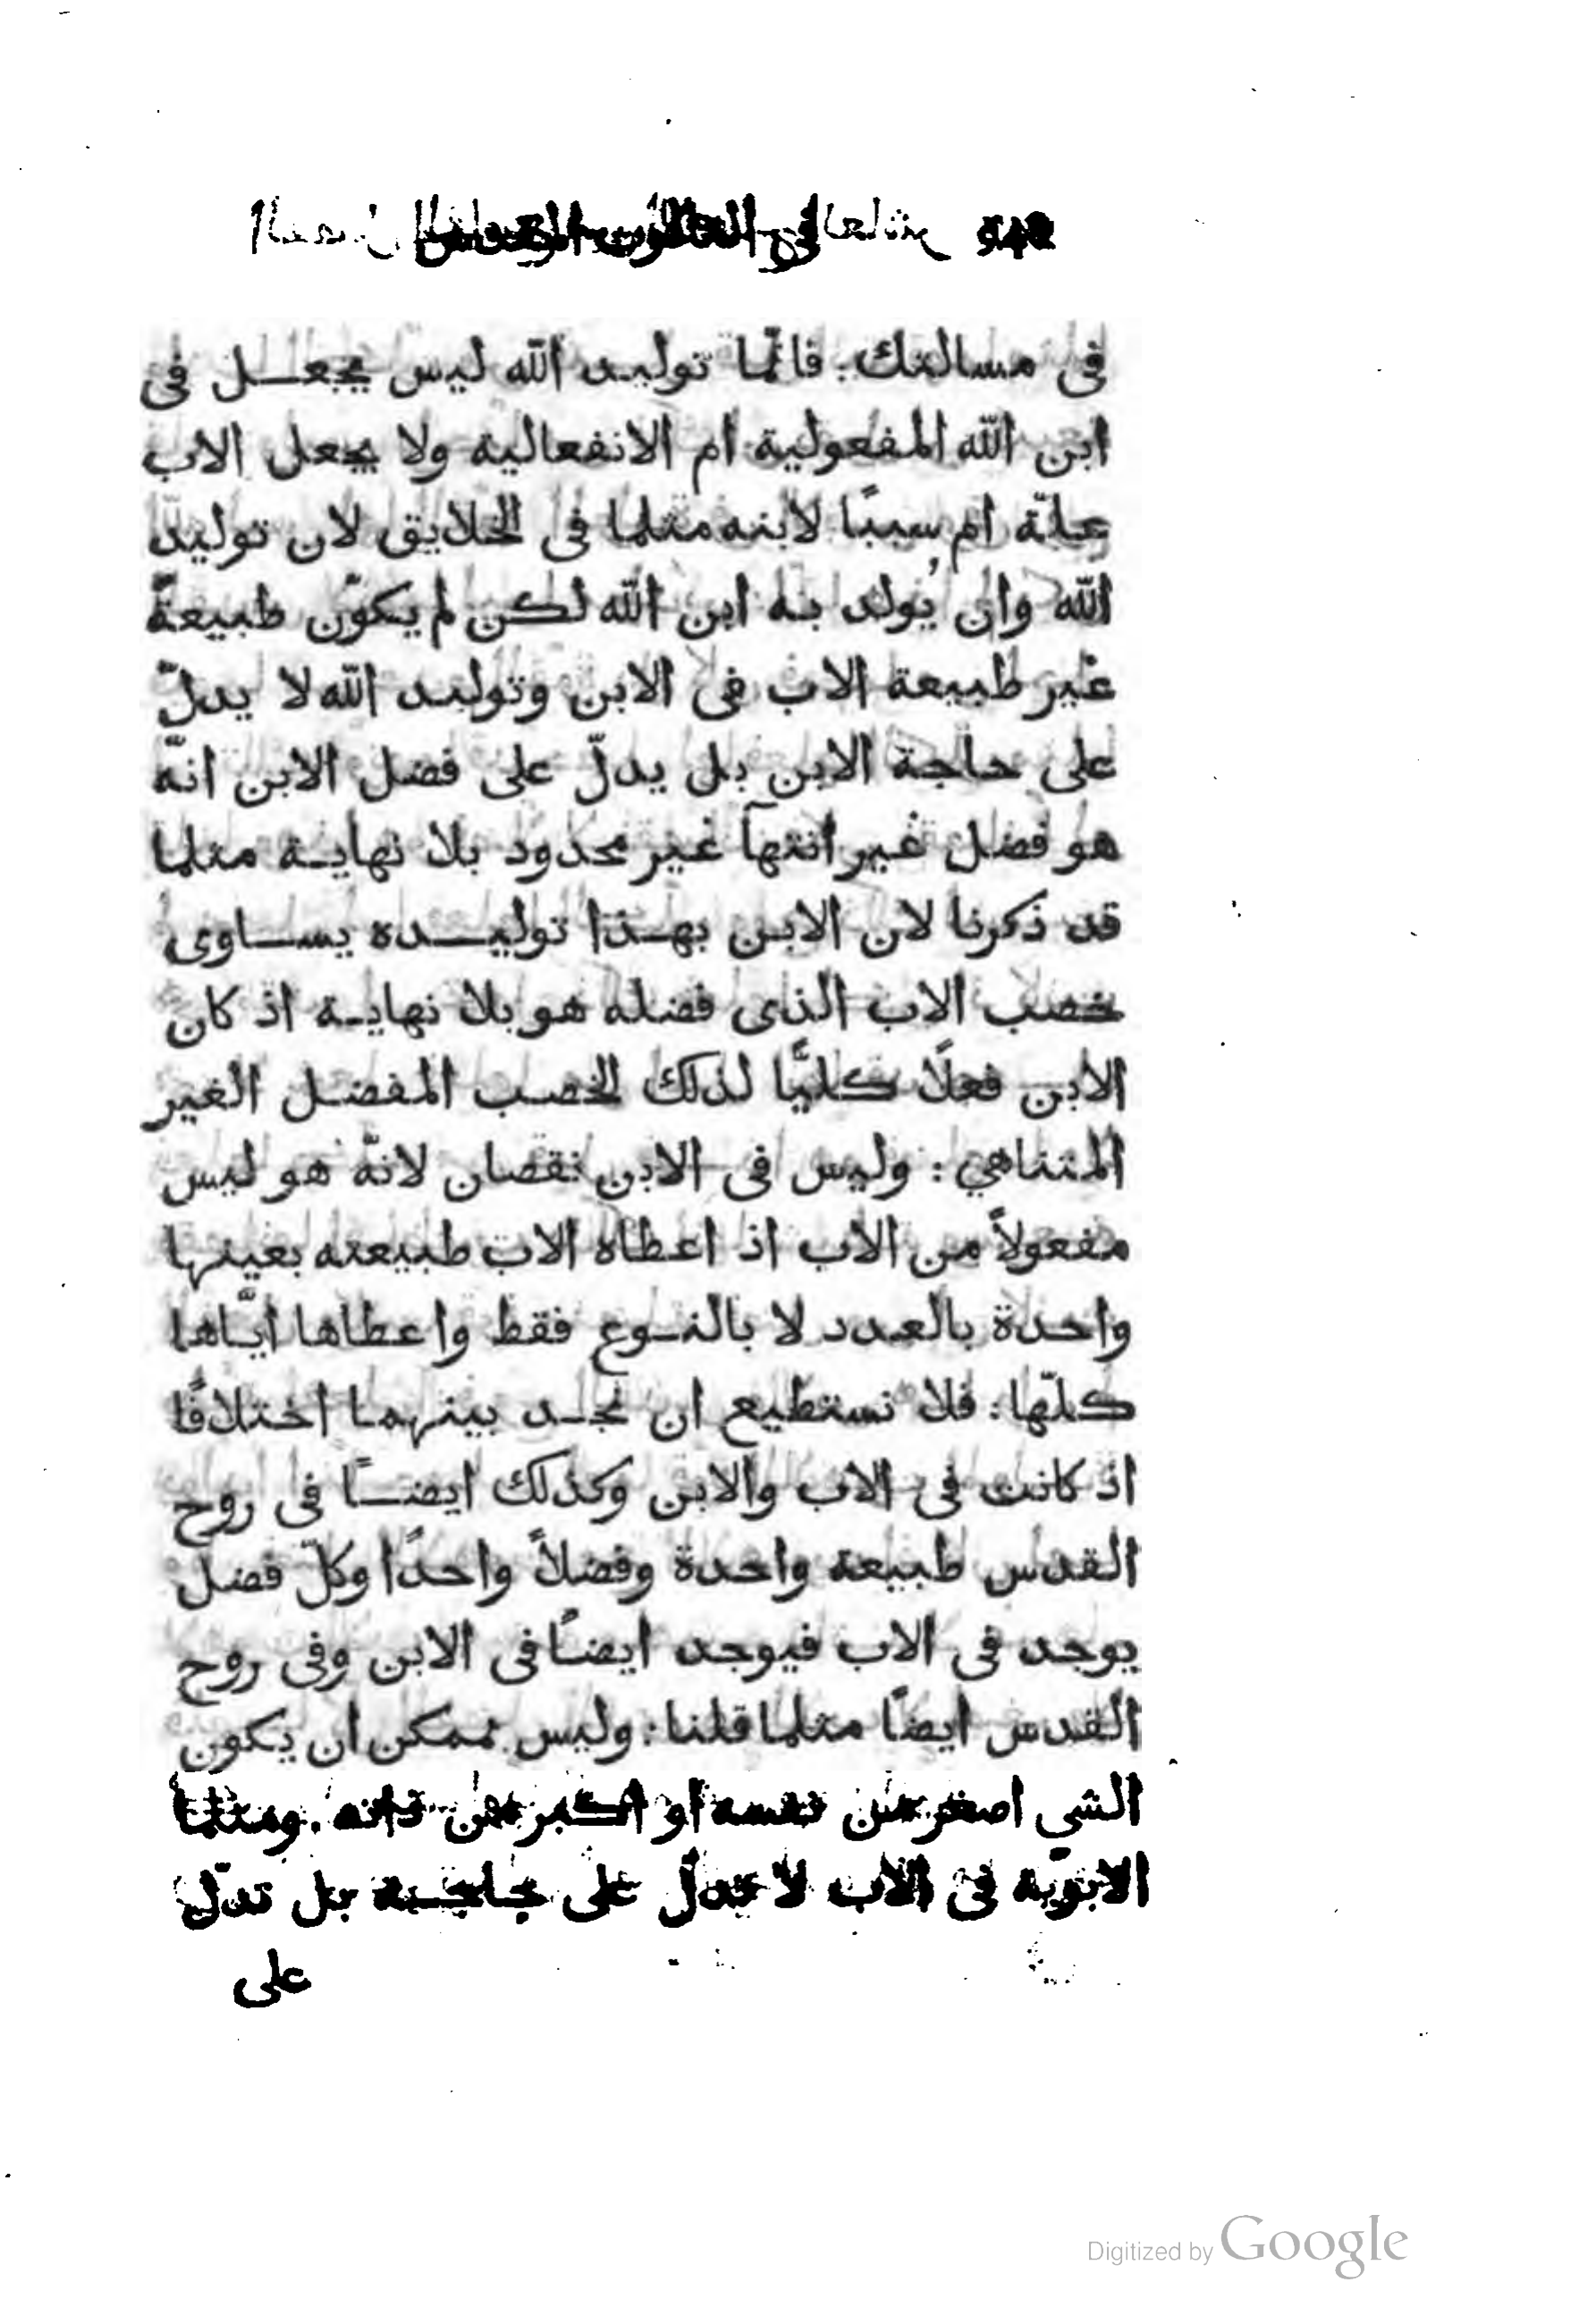 فى مسالتك: فانّما توليد الله ليس يجعل فى
ابن الله المفعولية ام الانفعالية ولا يجعل الاب
علّة ام سببًا لابنه مثلما فى الخلايق لان توليد
الله وان يُولد به ابن الله لكن لم يكوّن طبيعةً
غير طبيعة الاب فى الابن وتوليد الله لا يدلّ
على حاجة الابن بل يدلّ على فضل الابن انّه
هو فضل غير انتهآ غير محدود بلا نهاية مثلما
قد ذكرنا لان الابن بهذا توليده يساوى
خصب الاب الذى فضله هو بلا نهاية اذ كان
الابن فعلاً كليًّا لذلك الخصب المفضل الغير
المتناهي: وليس فى الابن نقصان لانّه هو ليس
مفعولاً من الاب اذ اعطاه الاب طبيعته بعينها
واحدة بالعدد لا بالنوع فقط واعطاها ايّاها
كلّها: فلا نستطيع ان نجد بينهما اختلافًا
اذ كانت فى الاب والابن وكذلك ايضًا فى روح
القدس طبيعة واحدة وفضلاً واحدًا وكلّ فضل
يوجد فى الاب فيوجد ايضًا فى الابن وفى روح
القدس ايضًا مثلما قلنا: وليس ممكن ان يكون
الشي اصغر من نفسه او اكبر من ذاته. ومثلما
الابوّية فى الاب لا تدلّ على حاجة بل تدلّ
على
Digitized by Google